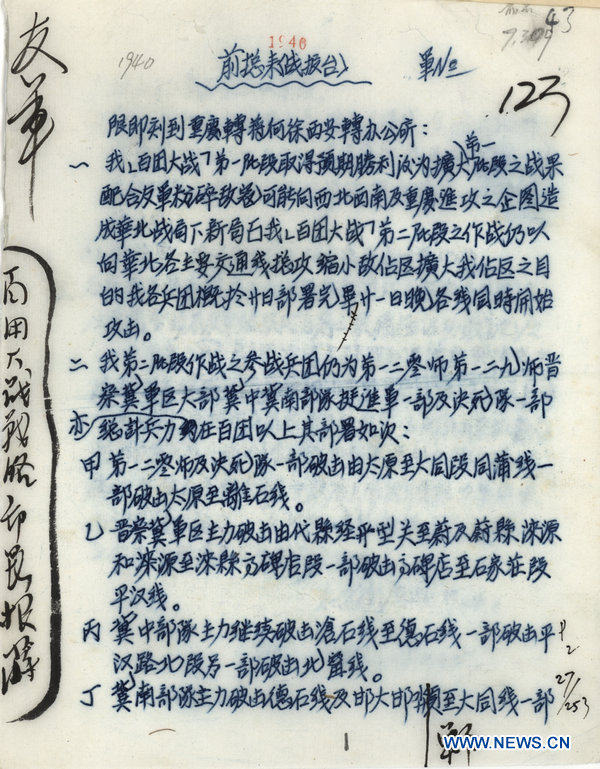 43
7.309
1940
1940
前总来(战报台)
军№
123
限即刻到重慶轉蒋何徐西安轉办公所：
一 我「百团大战」第一阶段取得预期勝利后为擴大第一阶段之战果
配合友军粉碎敌寇可能向西北西南及重慶進攻之企图造
成華北战局下新局面我「百团大战」第二阶段之作战仍以
向華北各主要交通线总攻縮小敌佔区擴大我佔区之目
的我各兵团概於廿日部署完畢廿一日晚各线同時開始
攻击。
二 我第二阶段作战之参战兵团仍为第一二零师第一二九师晋
察冀军区大部冀中冀南部隊挺進军一部及决死隊一部
总計兵力約在百团以上其部署如次：
甲 第一二零师及决死隊一部破击由太原至大同段同蒲线一
部破击太原至離石线。
乙 晋察冀军区主力破击由代縣经平型关至蔚及蔚縣淶源
和淶源至淶縣高碑店段一部破击高碑店至石家莊段
平汉线。
丙 冀中部隊主力继续破击滄石线至德石线一部破击平
汉路北段另一部破击北寧线。
丁 冀南部隊主力破击德石线及邯大邯至大同线一部
友军
百团大战战略部署报蒋
12
27/253
WWW.NEWS.CN